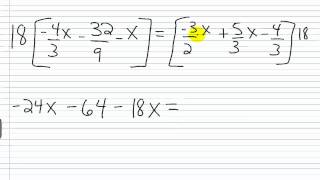 18[-4/3 x - 32/9 - x] = [-3/2 x + 5/3 x - 4/3]18
-24x - 64 - 18x =